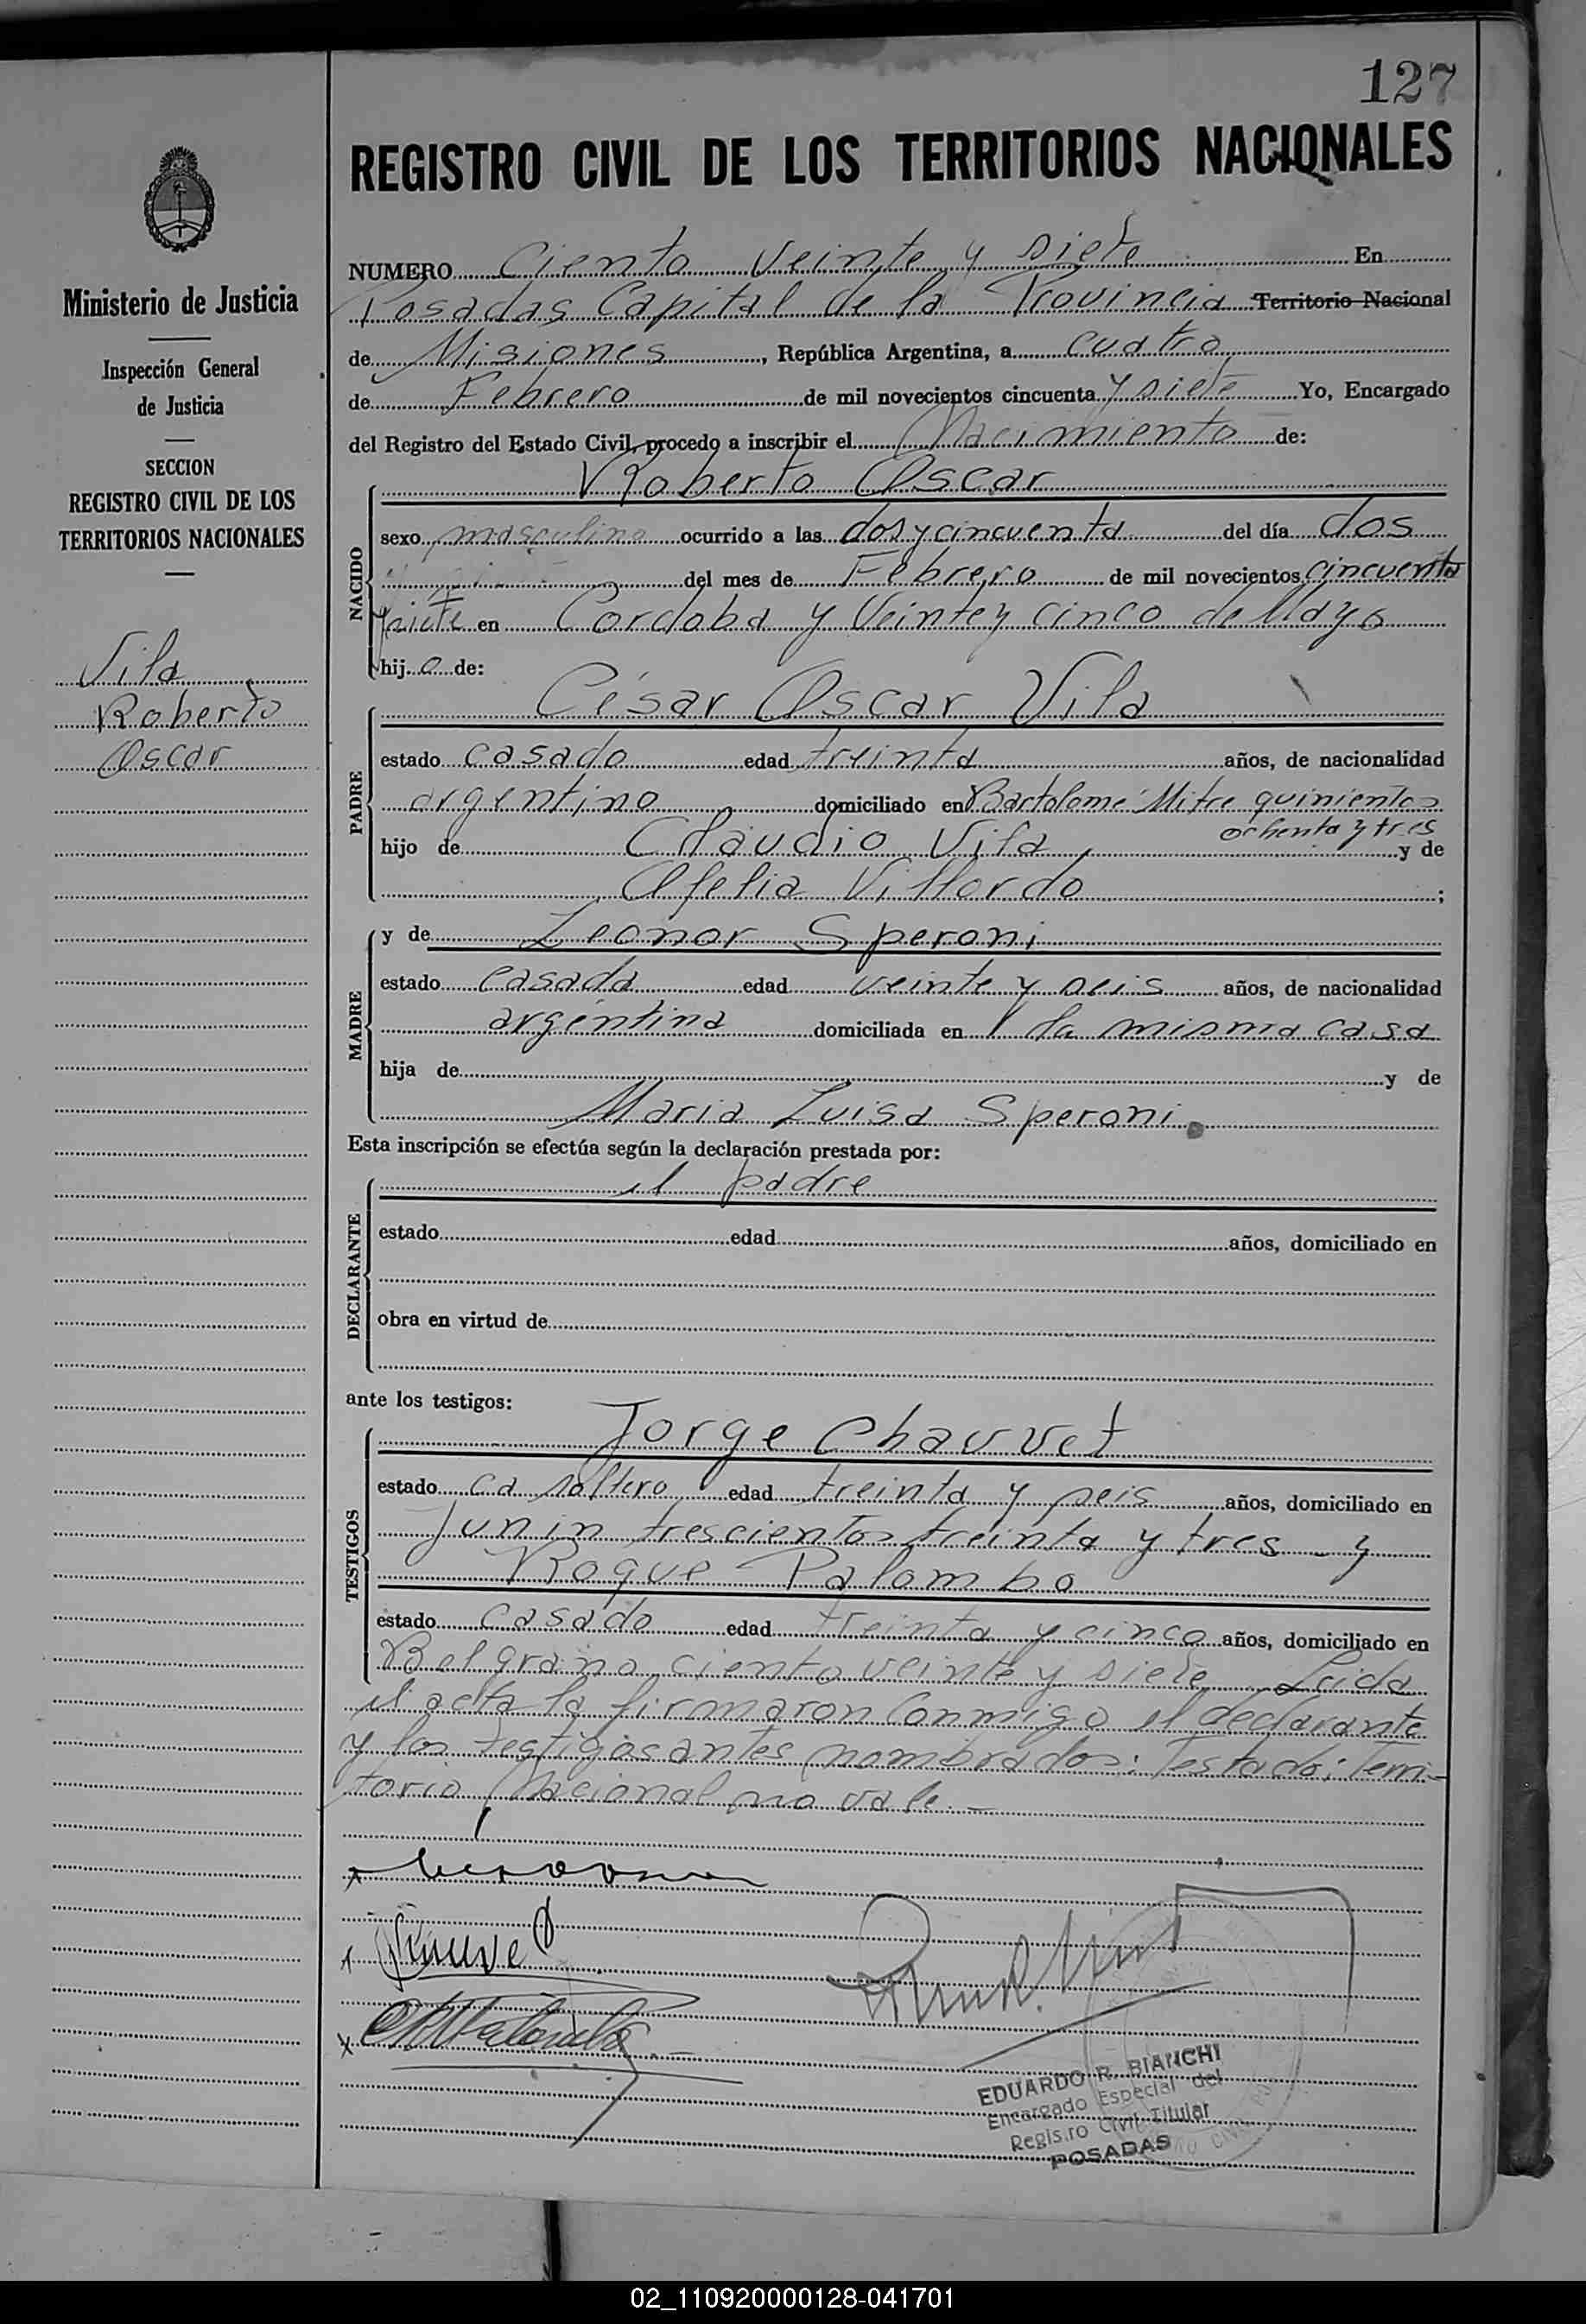 127
REGISTRO CIVIL DE LOS TERRITORIOS NACIONALES
Ministerio de Justicia
Inspección General
de Justicia
SECCION
REGISTRO CIVIL DE LOS
TERRITORIOS NACIONALES
Vila
Roberto
Oscar
NUMERO Ciento veinte y siete En
Posadas Capital de la Provincia Territorio Nacional
de Misiones, República Argentina, a cuatro
de Febrero de mil novecientos cincuenta y siete Yo, Encargado
del Registro del Estado Civil, procedo a inscribir el Nacimiento de:
NACIDO
Roberto Oscar
sexo masculino ocurrido a las dos y cincuenta del día dos
del mes de Febrero de mil novecientos cincuenta
y siete en Cordoba y Veinte y cinco de Mayo
hijo de:
PADRE
César Oscar Vila
estado casado edad treinta años, de nacionalidad
argentino domiciliado en Bartolomé Mitre quinientos
ochenta y tres
hijo de Claudio Vila y de
Ofelia Villordo;
MADRE
y de Leonor Speroni
estado casada edad veinte y seis años, de nacionalidad
argentina domiciliada en la misma casa
hija de y de
Maria Luisa Speroni
Esta inscripción se efectúa según la declaración prestada por:
DECLARANTE
el padre
estado edad años, domiciliado en
obra en virtud de
ante los testigos:
TESTIGOS
Jorge Chauvet
estado ca soltero edad treinta y seis años, domiciliado en
Junin trescientos treinta y tres - y
Roque Palombo
estado casado edad treinta y cinco años, domiciliado en
Belgrano ciento veinte y siete Leida
el acta la firmaron conmigo el declarante
y los testigos antes nombrados: Testado: Terri-
torio Nacional no vale. -
EDUARDO R. BIANCHI
Encargado Especial del
Registro Civil Titular
POSADAS
02_110920000128-041701